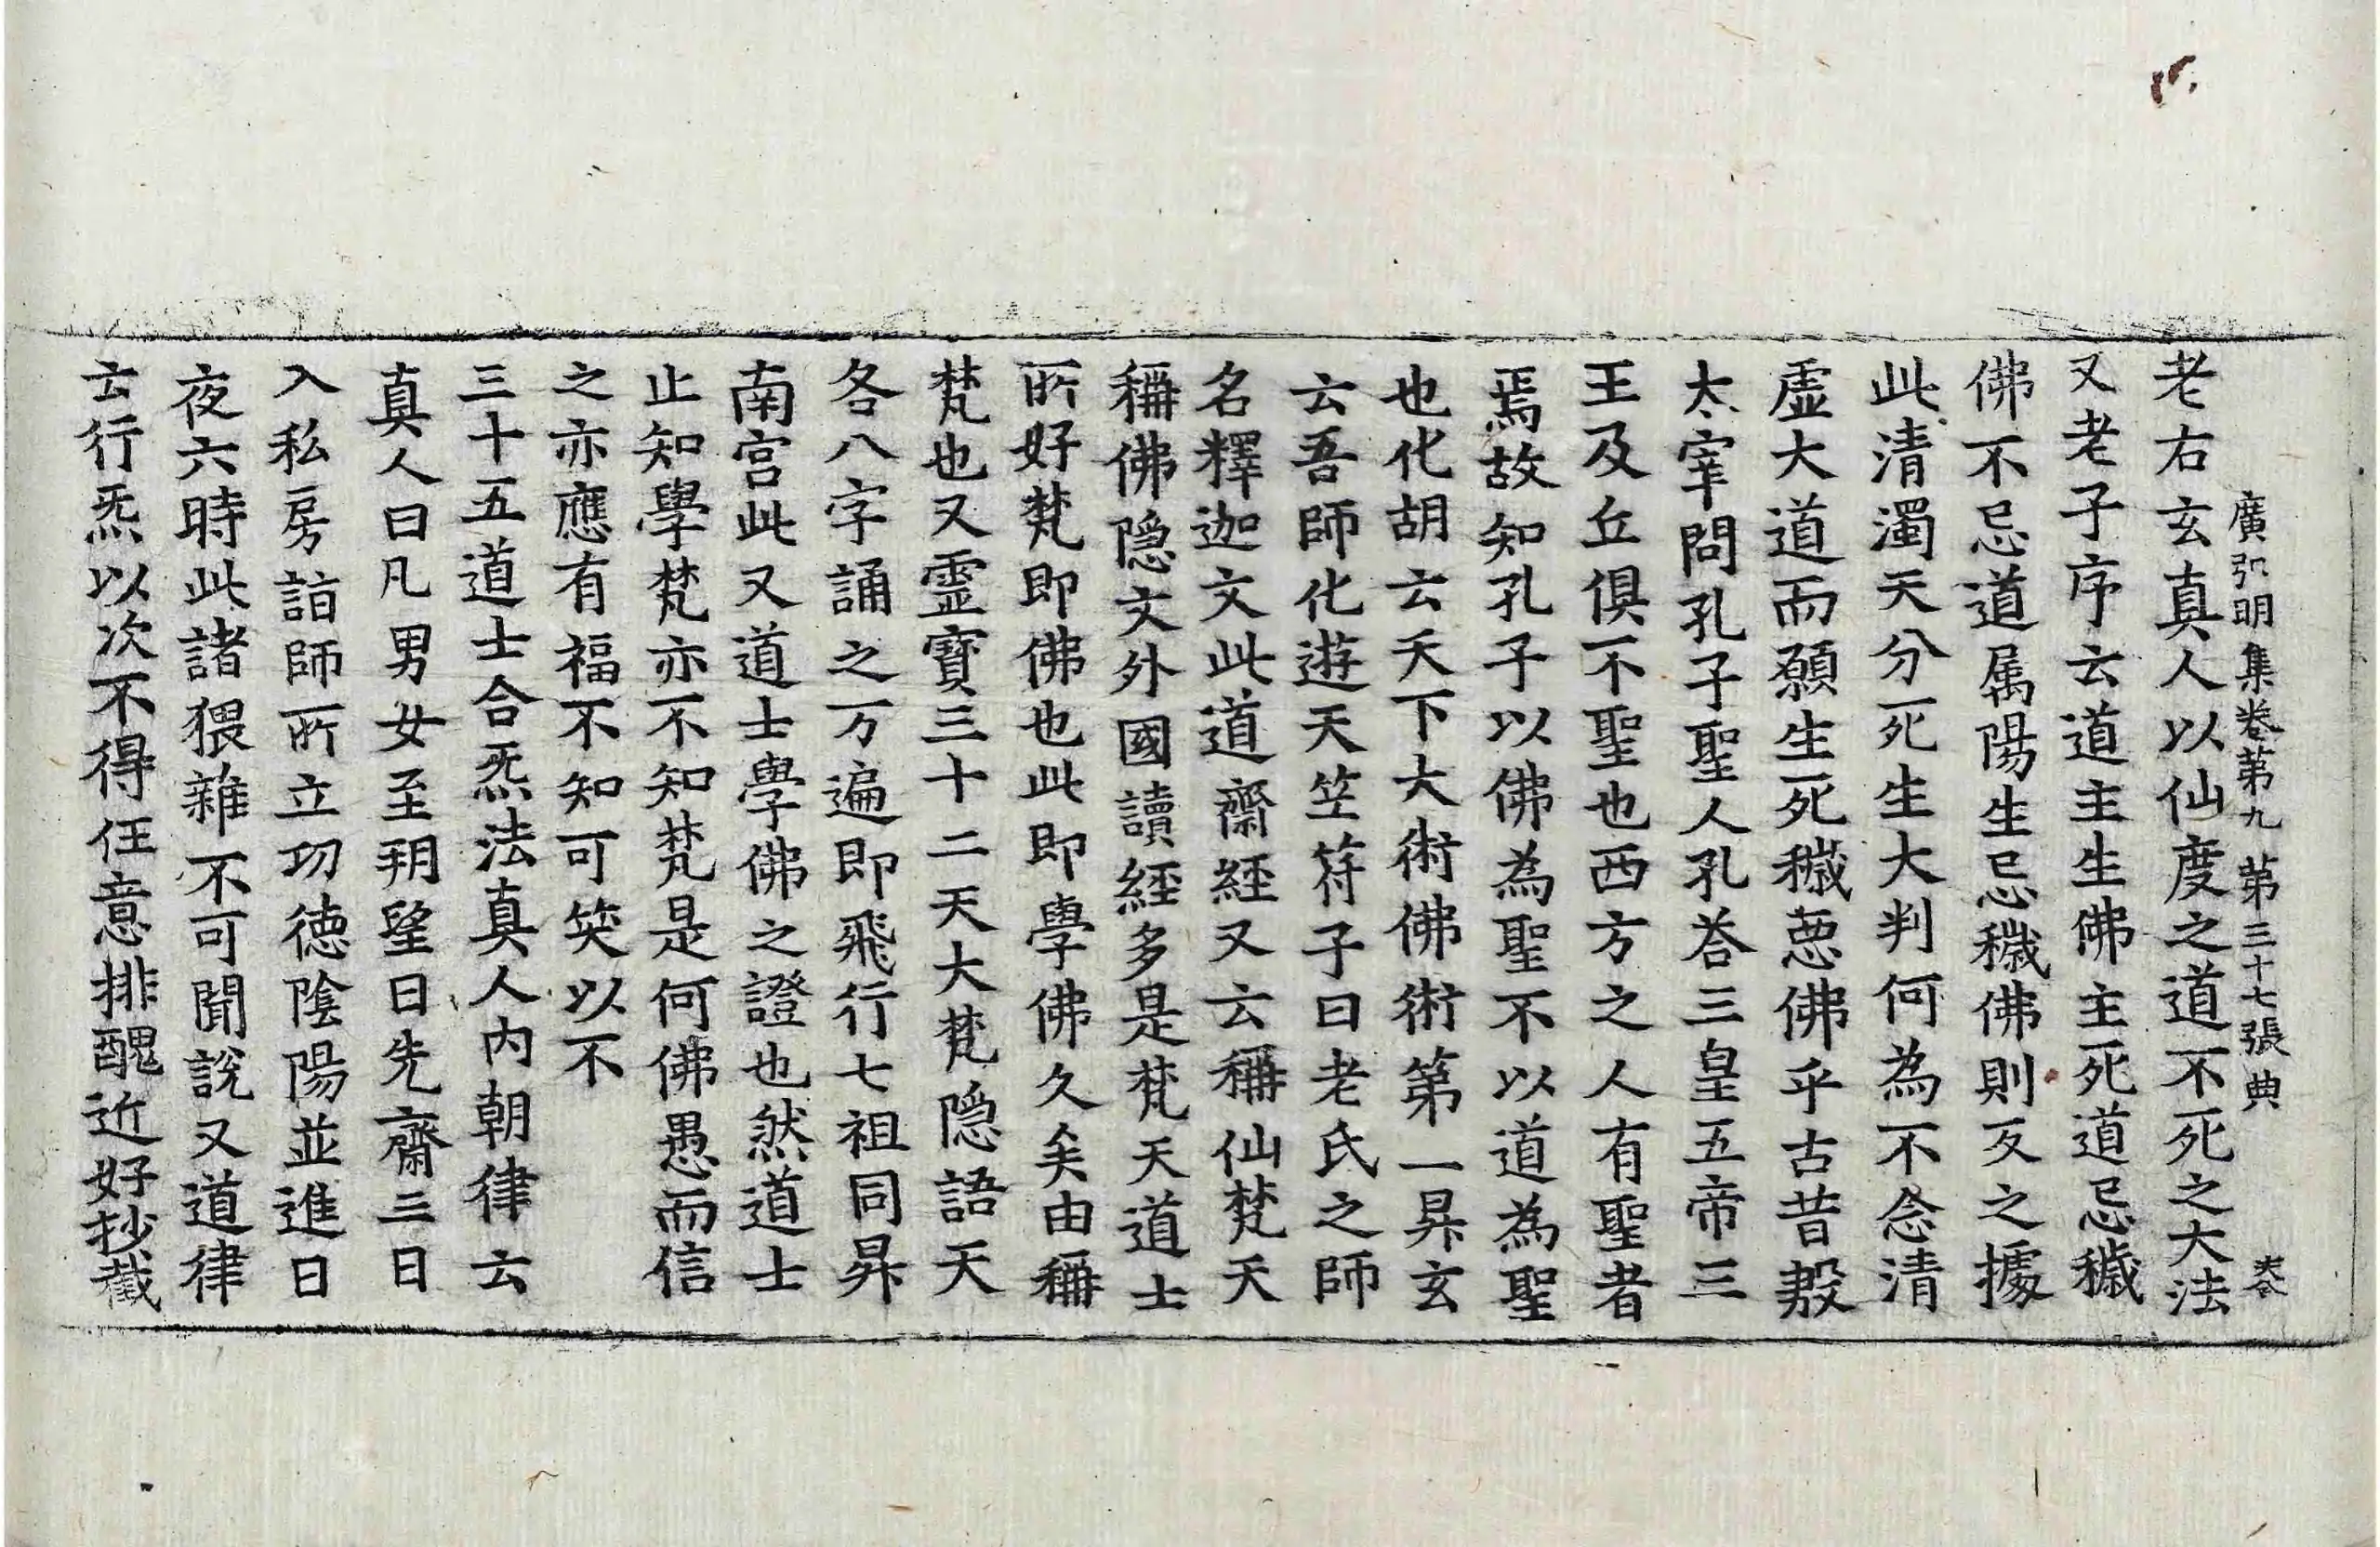 廣弘明集卷第九 第三十七張 典
老右玄真人以仙度之道不死之大法
又老子序云道主生佛主死道忌穢
佛不忌道属陽生忌穢佛則反之據
此清濁天分死生大判何為不念清
虛大道而願生死穢惡佛乎古昔殷
太宰問孔子聖人孔荅三皇五帝三
王及丘俱不聖也西方之人有聖者
焉故知孔子以佛為聖不以道為聖
也化胡云天下大術佛術第一昇玄
云吾師化遊天笁符子曰老氏之師
名釋迦文此道齋經又云稱仙梵天
稱佛隱文外國讀經多是梵天道士
所好梵即佛也此即學佛久矣由稱
梵也又靈寶三十二天大梵隱語天
各八字誦之万遍即飛行七祖同昇
南宮此又道士學佛之證也然道士
止知學梵亦不知梵是何佛愚而信
之亦應有福不知可笑以不
三十五道士合炁法真人內朝律云
真人曰凡男女至朔望日先齋三日
入私房詣師所立功德陰陽並進日
夜六時此諸猥雜不可聞說又道律
云行炁以次不得任意排醜近好抄截